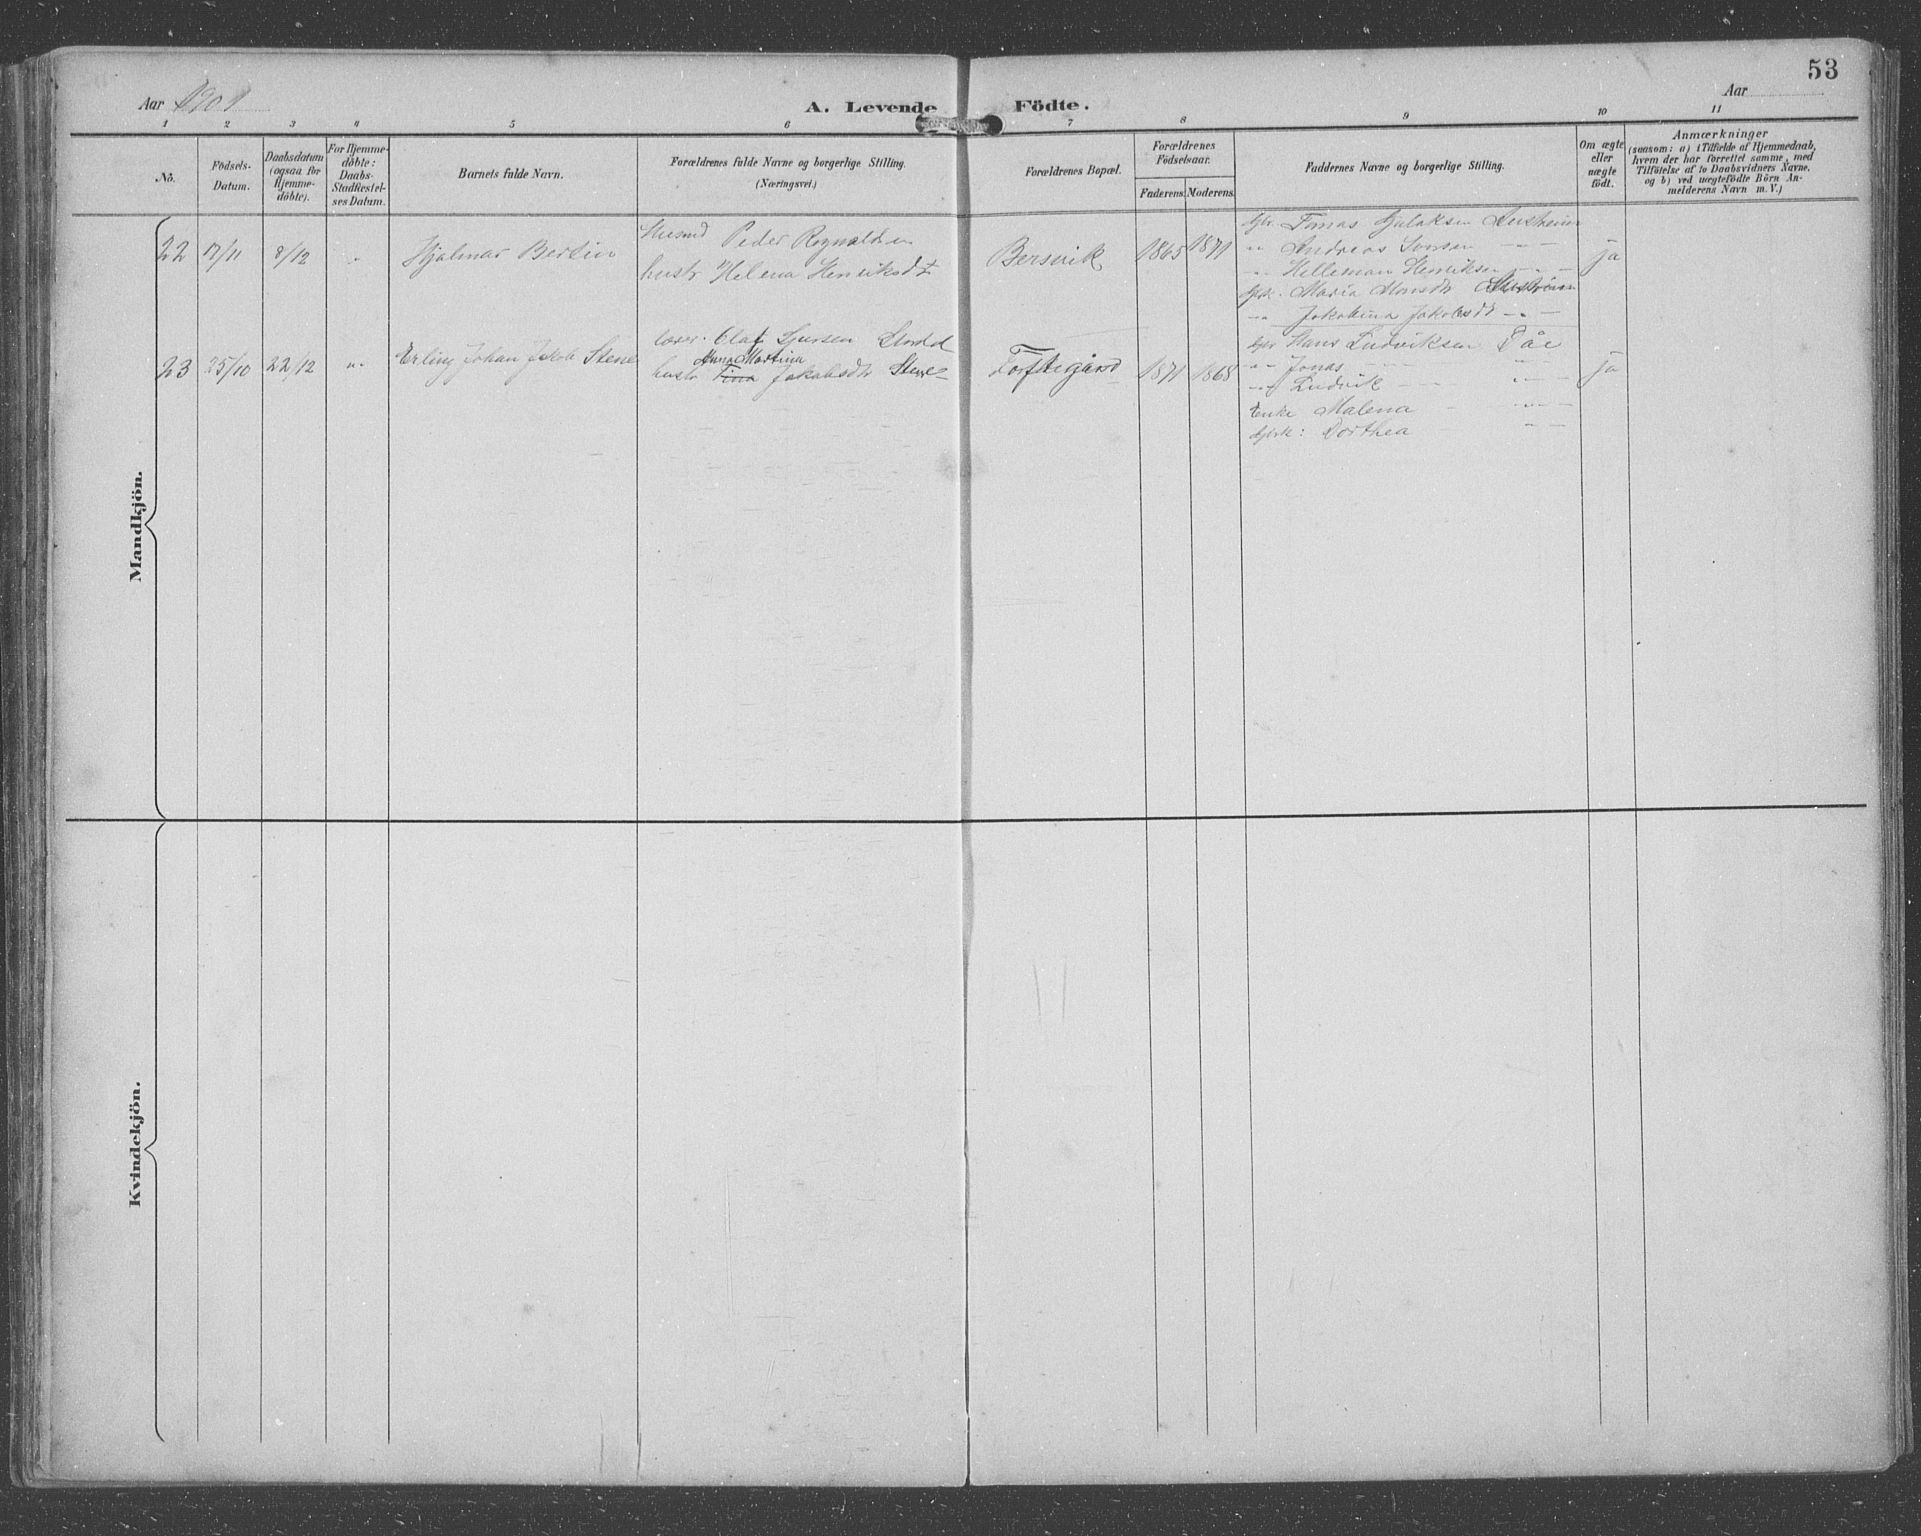 53
Aar 1901
A. Levende Födte.
Aar
1 2 3 4 5 6 7 8 9 10 11
No.
Födsels-Datum.
Daabsdatum (ogsaa for Hjemme-döbte).
For Hjemme-döbte: Daabs-Stadfæstel-ses Datum.
Barnets fulde Navn.
Forældrenes fulde Navne og borgerlige Stilling.
(Næringsvei.)
Forældrenes Bopæl.
Forældrenes Födselsaar.
Faderens. Moderens.
Faddernes Navne og borgerlige Stilling.
Om ægte eller uægte födt.
Anmærkninger
(saasom: a) i Tilfælde af Hjemmedaab, hvem der har forrettet samme, med Tilföielse af to Daabsvidners Navne, og b) ved uægtefödte Börn An-melderens Navn m. V.)
Mandkjön.
22 17/11 8/12 " Hjalmar Bertin
Husmd Peder Rognaldsen
hustr Helena Henriksdt
Bersvik 1865 1871
Gbr. Tomas
"" Andreas
"" Hilleman Henriksen "-"
Maria Monsdt
"" Jakobina Jakobsdt "-"
ja
23 25/10 22/12 "" Erling Johan Jakob Stene
lærer. Olaf Sjursen
Anna Martina
hustr Tina Jakobsdtr Stene
Toftegård 1871 1868
Gbr Hans Ludviksen
"" Jonas "-"
"" Ludvik "-"
Enke Malena "-"
Dorthea "-"
ja
Kvindekjön.